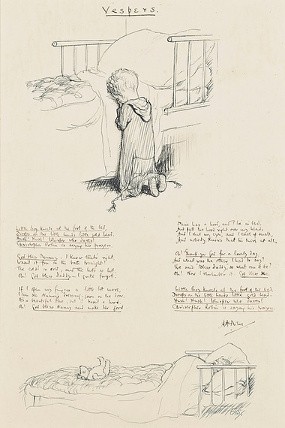 Vespers.
Little boy kneels at the foot of the bed,
Droops on the little hands little gold head.
Hush! Hush! Whisper who dares!
Christopher Robin is saying his prayers.
God bless Mummy. I know that's right.
Wasn't it fun in the bath tonight?
The cold's so cold, and the hot's so hot.
Oh! God bless Daddy - I quite forgot.
If I open my fingers a little bit more,
I can see Nanny's dressing-gown on the door.
It's a beautiful blue, but it hasn't a hood.
Oh! God bless Nanny and make her good.
Mine has a hood, and I lie in bed,
And pull the hood right over my head,
And I shut my eyes, and I curl up small,
And nobody knows that I'm there at all.
Oh! Thank you, God, for a lovely day.
And what was the other I had to say?
I said "Bless Daddy," so what can it be?
Oh! Now I remember it. God bless Me.
Little boy kneels at the foot of the bed,
Droops on the little hands little gold head.
Hush! Hush! Whisper who dares!
Christopher Robin is saying his prayers.